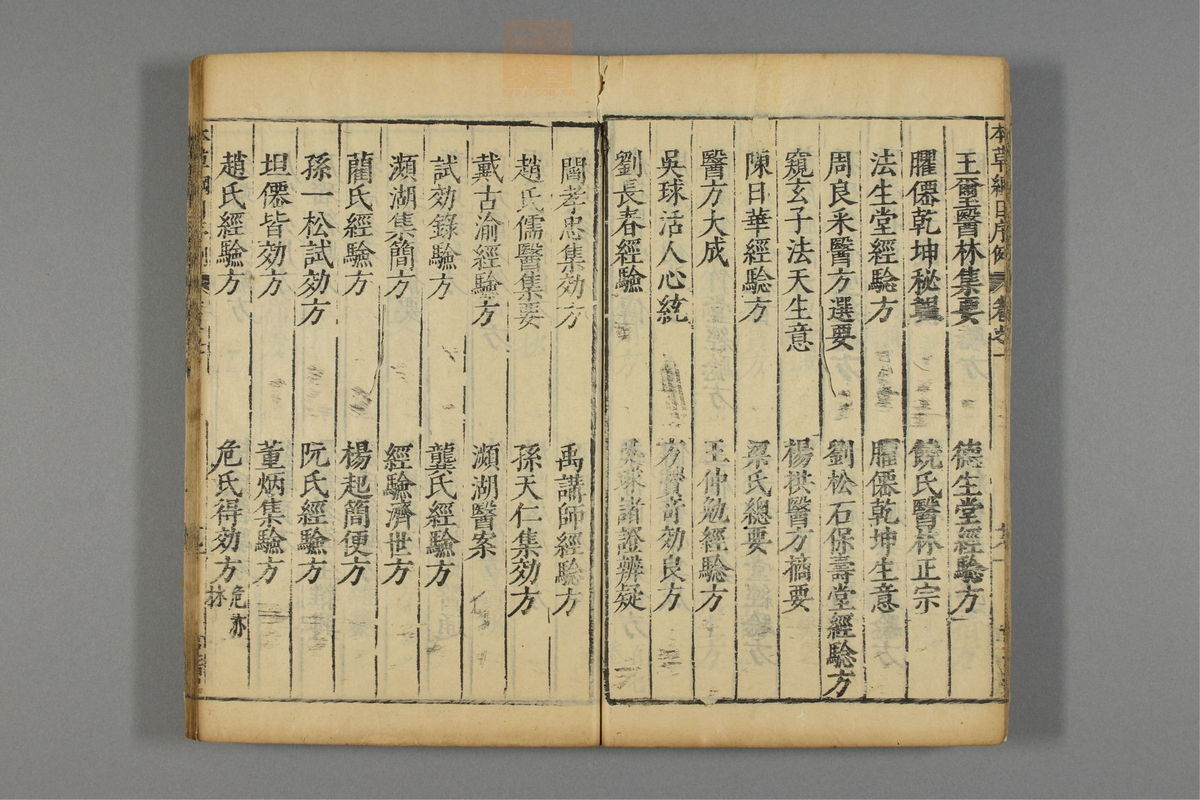 王璽醫林集要
德生堂經驗方
臞僊乾坤秘韞
饒氏醫林正宗
法生堂經驗方
臞僊乾坤生意
周良采醫方選要
劉松石保壽堂經驗方
窺玄子法天生意
楊拱醫方摘要
陳日華經驗方
梁氏總要
醫方大成
王仲勉經驗方
吳球活人心統
方賢奇効良方
劉長春經驗
吳球諸證辨疑
閻孝忠集効方
禹講師經驗方
趙氏儒醫集要
孫天仁集効方
戴古渝經驗方
瀕湖醫案
試効錄驗方
龔氏經驗方
瀕湖集簡方
經驗濟世方
藺氏經驗方
楊起簡便方
孫一松試効方
阮氏經驗方
坦僊皆効方
董炳集驗方
趙氏經驗方
危氏得効方 危亦林
本草綱目序例 卷之一